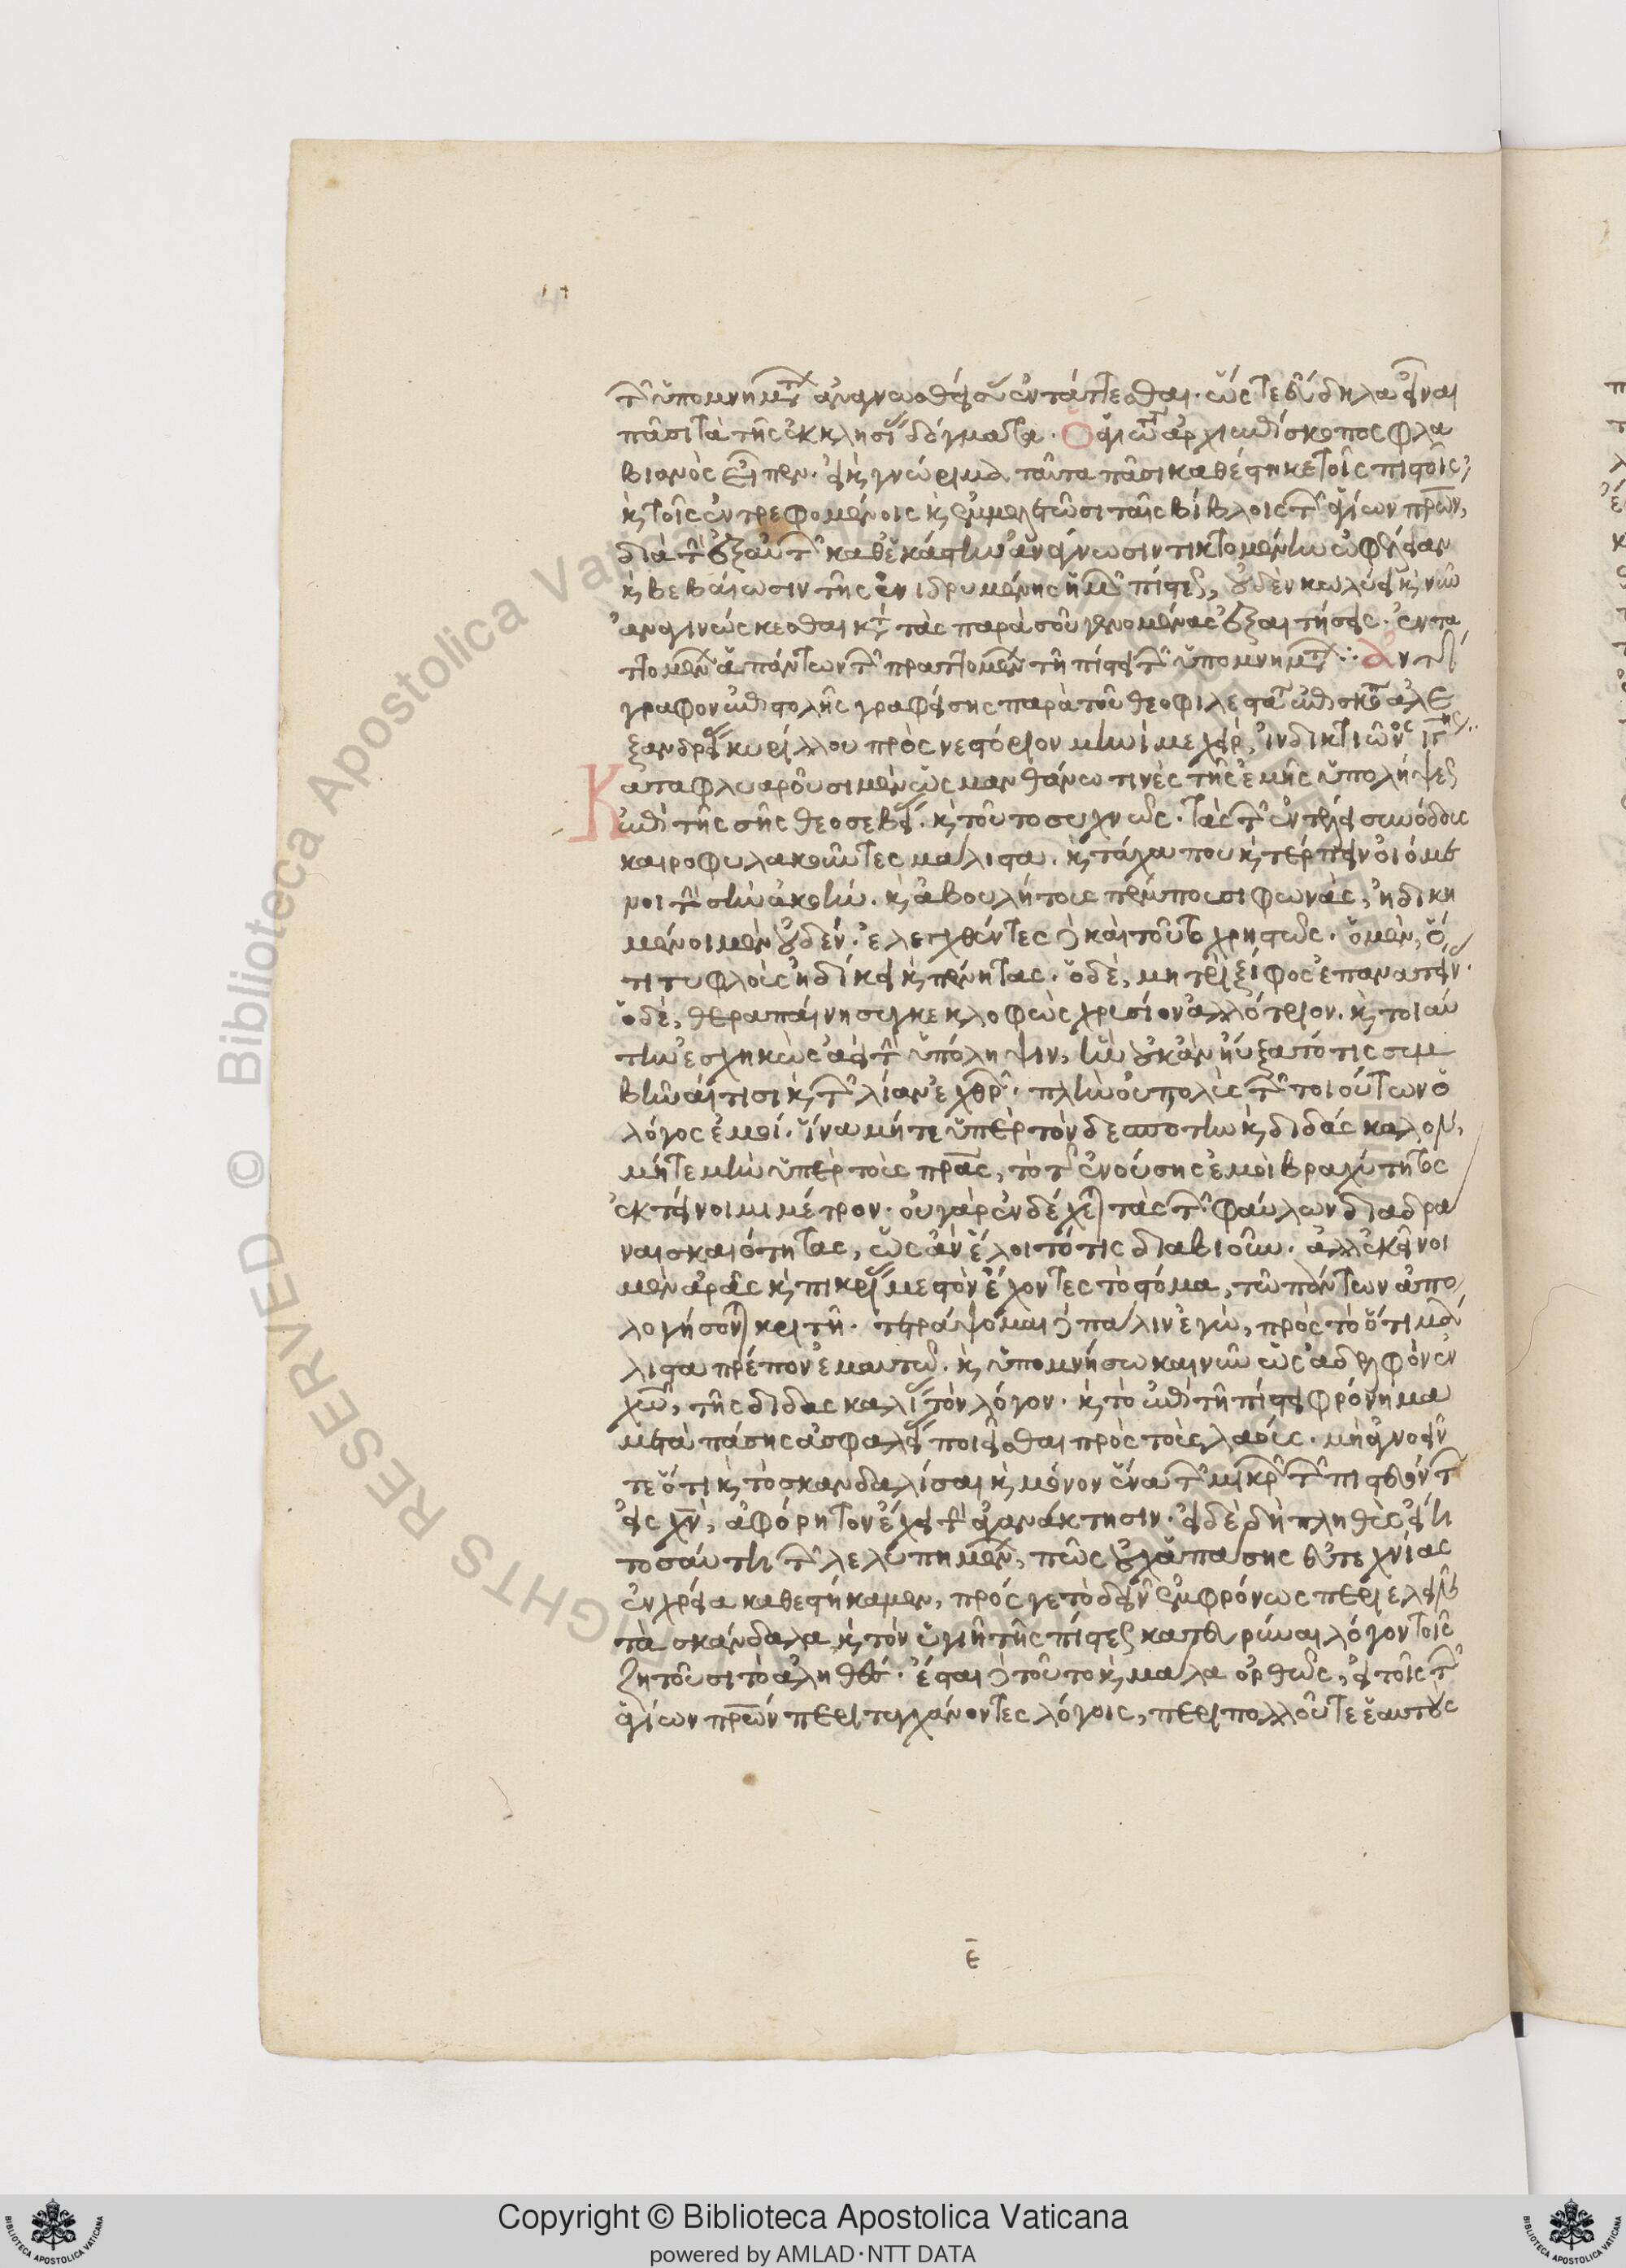 τῶν ὑπομνημάτων ἀναγνωσθεῖσιν ἐντάττεσθαι. ὥστε εὔδηλα εἶναι
πᾶσι τὰ τῆς ἐκκλησίας δόγματα. Ὁ ἁγιώτατος ἀρχιεπίσκοπος φλα
βιανὸς εἶπεν. εἰ καὶ γνώριμα ταῦτα πᾶσι καθέστηκε τοῖς πιστοῖς,
καὶ τοῖς ἐντρεφομένοις καὶ ἐμμελετῶσι ταῖς βίβλοις τῶν ἁγίων πρων,
διὰ τὴν ἐξ αὐτῶν καθ' ἑκάστην ἀνάγνωσιν τικτομένην ὠφέλειαν
καὶ βεβαίωσιν τῆς ἐνιδρυμένης ἡμῖν πίστεως, οὐδὲν κωλύει καὶ νῦν
ἀναγινώσκεσθαι κατὰ τὰς παρὰ σοῦ γενομένας ἐξαιτήσεις. ἐντα
ττομένων ἁπάντων τῶν πραττομένων τῇ πίστει τῶν ὑπομνημάτων ∴ Ἀντί
γραφον ἐπιστολῆς γραφείσης παρὰ τοῦ θεοφιλεστάτου ἐπισκόπου ἀλε
ξανδρείας κυρίλλου πρὸς νεστόριον μηνὶ μεχὶρ, ἰνδικτιῶνος ιγης
Καταφλυαροῦσι μὲν ὡς μανθάνω τινὲς τῆς ἐμῆς ὑπολήψεως
ἐπὶ τῆς σῆς θεοσεβείας. καὶ τοῦτο συχνῶς. τὰς τῶν ἐν τέλει συνόδους
καιροφυλακοῦντες μάλιστα. καὶ τάχα που καὶ τέρπειν οἰόμε
νοι τὴν σὴν ἀκοὴν. καὶ ἀβουλήτους πέμπουσι φωνὰς, ἠδικη
μένοι μὲν οὐδέν. ἐλεγχθέντες δὲ καὶ τοῦτο χρηστῶς. ὁ μὲν, ὅ
τι τυφλοὺς ἠδίκει καὶ πένητας. ὁ δὲ, μητρὶ ξίφος ἐπανατείν.
ὁ δὲ, θεραπαίνῃ συγκεκλοφὼς χρυσίον ἀλλότριον. καὶ τοιαύ
την ἐσχηκὼς ἀεὶ τὴν ὑπόληψιν, ἣν οὐκ ἂν ηὔξατό τις συμ
βῆναί τισι καὶ τῶν λίαν ἐχθρῶν. πλὴν οὐ πολὺς τῶν τοιούτων ὁ
λόγος ἐμοί. ἵνα μήτε ὑπὲρ τὸν δεσπότην καὶ διδάσκαλον,
μήτε μὴν ὑπὲρ τοὺς πρας, τὸ τῆς ἐνούσης ἐμοὶ βραχύτητος
ἐκτείνοιμι μέτρον. οὐ γὰρ ἐνδέχεται τὰς τῶν φαύλων διαδρᾶ
ναι σκαιότητας, ὡς ἂν ἕλοιτό τις διαβιοῦν. ἀλλ' ἐκεῖνοι
μὲν ἀρᾶς καὶ πικρίας μεστὸν ἔχοντες τὸ στόμα, τῶ πάντων ἀπο
λογήσονται κριτῇ. τετράψομαι δὲ πάλιν ἐγὼ, πρὸς τὸ ὅτι μά
λιστα πρέπον ἐμαυτῶ. καὶ ὑπομνήσω καὶ νῦν ὡς ἀδελφὸν ἐν
χω, τῆς διδασκαλίας τὸν λόγον. καὶ τὸ ἐπὶ τῇ πίστει φρόνημα
μετὰ πάσης ἀσφαλείας ποιεῖσθαι πρὸς τοὺς λαούς. μὴ ἀγνοεῖν
τε ὅτι καὶ τὸ σκανδαλίσαι καὶ μόνον ἕνα τῶν μικρῶν τῶν πιστευόντων
εἰς χν, ἀφόρητον ἔχει τὴν ἀγανάκτησιν. εἰ δὲ δὴ πληθὺς εἴη
τοσαύτη τῶν λελυπημένων, πῶς οὐχ ἁπάσης εὐτεχνίας
ἐν χρείᾳ καθεστήκαμεν, πρός γε τὸ δεῖν ἐμφρόνως περιελεῖν
τὰ σκάνδαλα καὶ τὸν ὑγιῆ τῆς πίστεως κατευρύναι λόγον τοῖς
ζητοῦσι τὸ ἀληθές. ἔσται δὲ τοῦτο καὶ μάλα ὀρθῶς, εἰ τοῖς τῶν
ἁγίων πρων περιτυγχάνοντες λόγοις, περὶ πολλοῦ τε ἑαυτοὺς
ε
Copyright © Biblioteca Apostolica Vaticana
powered by AMLAD·NTT DATA